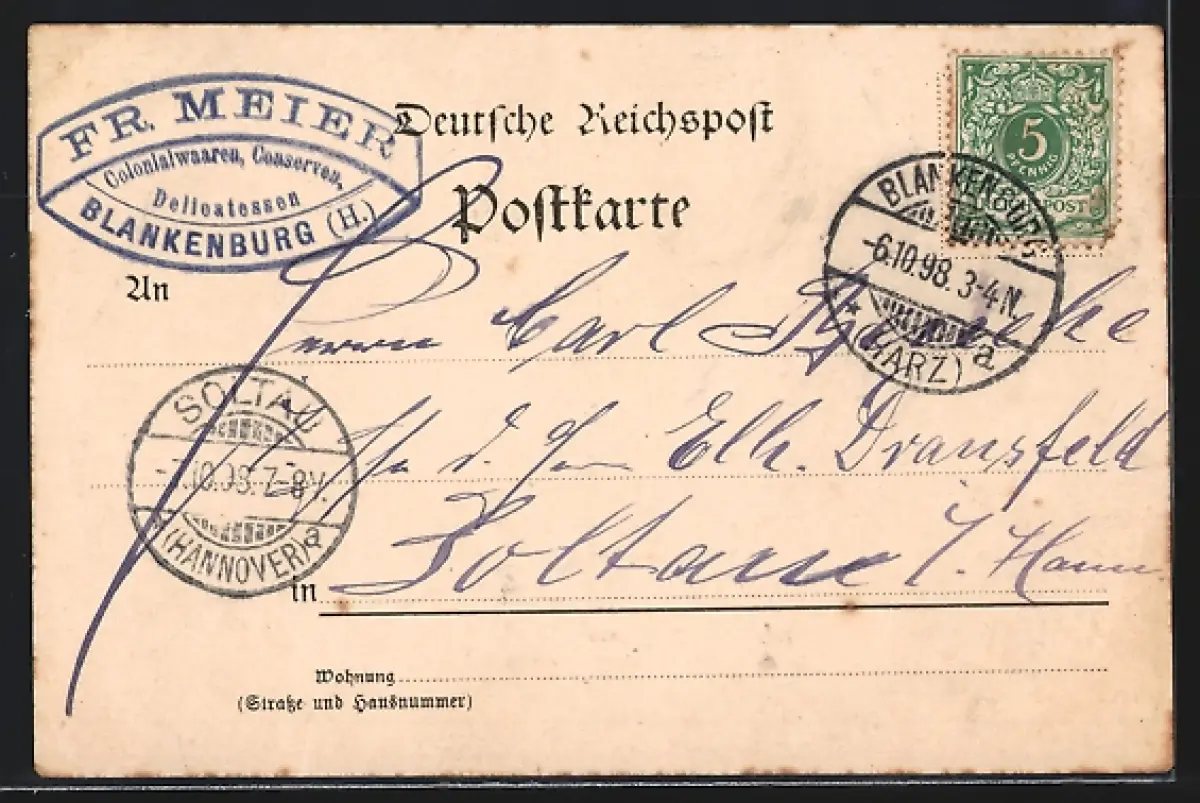 FR. MEIER
Colonialwaaren, Conserven,
Delicatessen
BLANKENBURG (H.)
Deutsche Reichspost
Postkarte
5
PFENNIG
REICHSPOST
BLANKENBURG
-6.10.98. 3-4 N.
* (HARZ) a
An
Herrn Carl
SOLTAU
-7.10.98. 7-8 V.
* (HANNOVER) a
Elh. Dransfeld
in Soltau i/ Hann.
Wohnung
(Straße und Hausnummer)